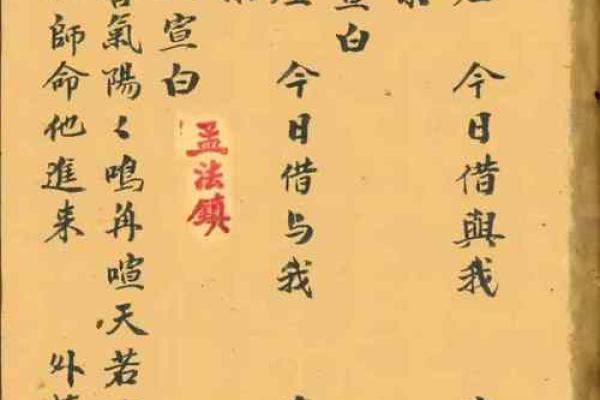 今日借與我
宣白
今日借与我
孟法鎮
宣白
氣陽〻鳴再喧天若
師命他進来 外